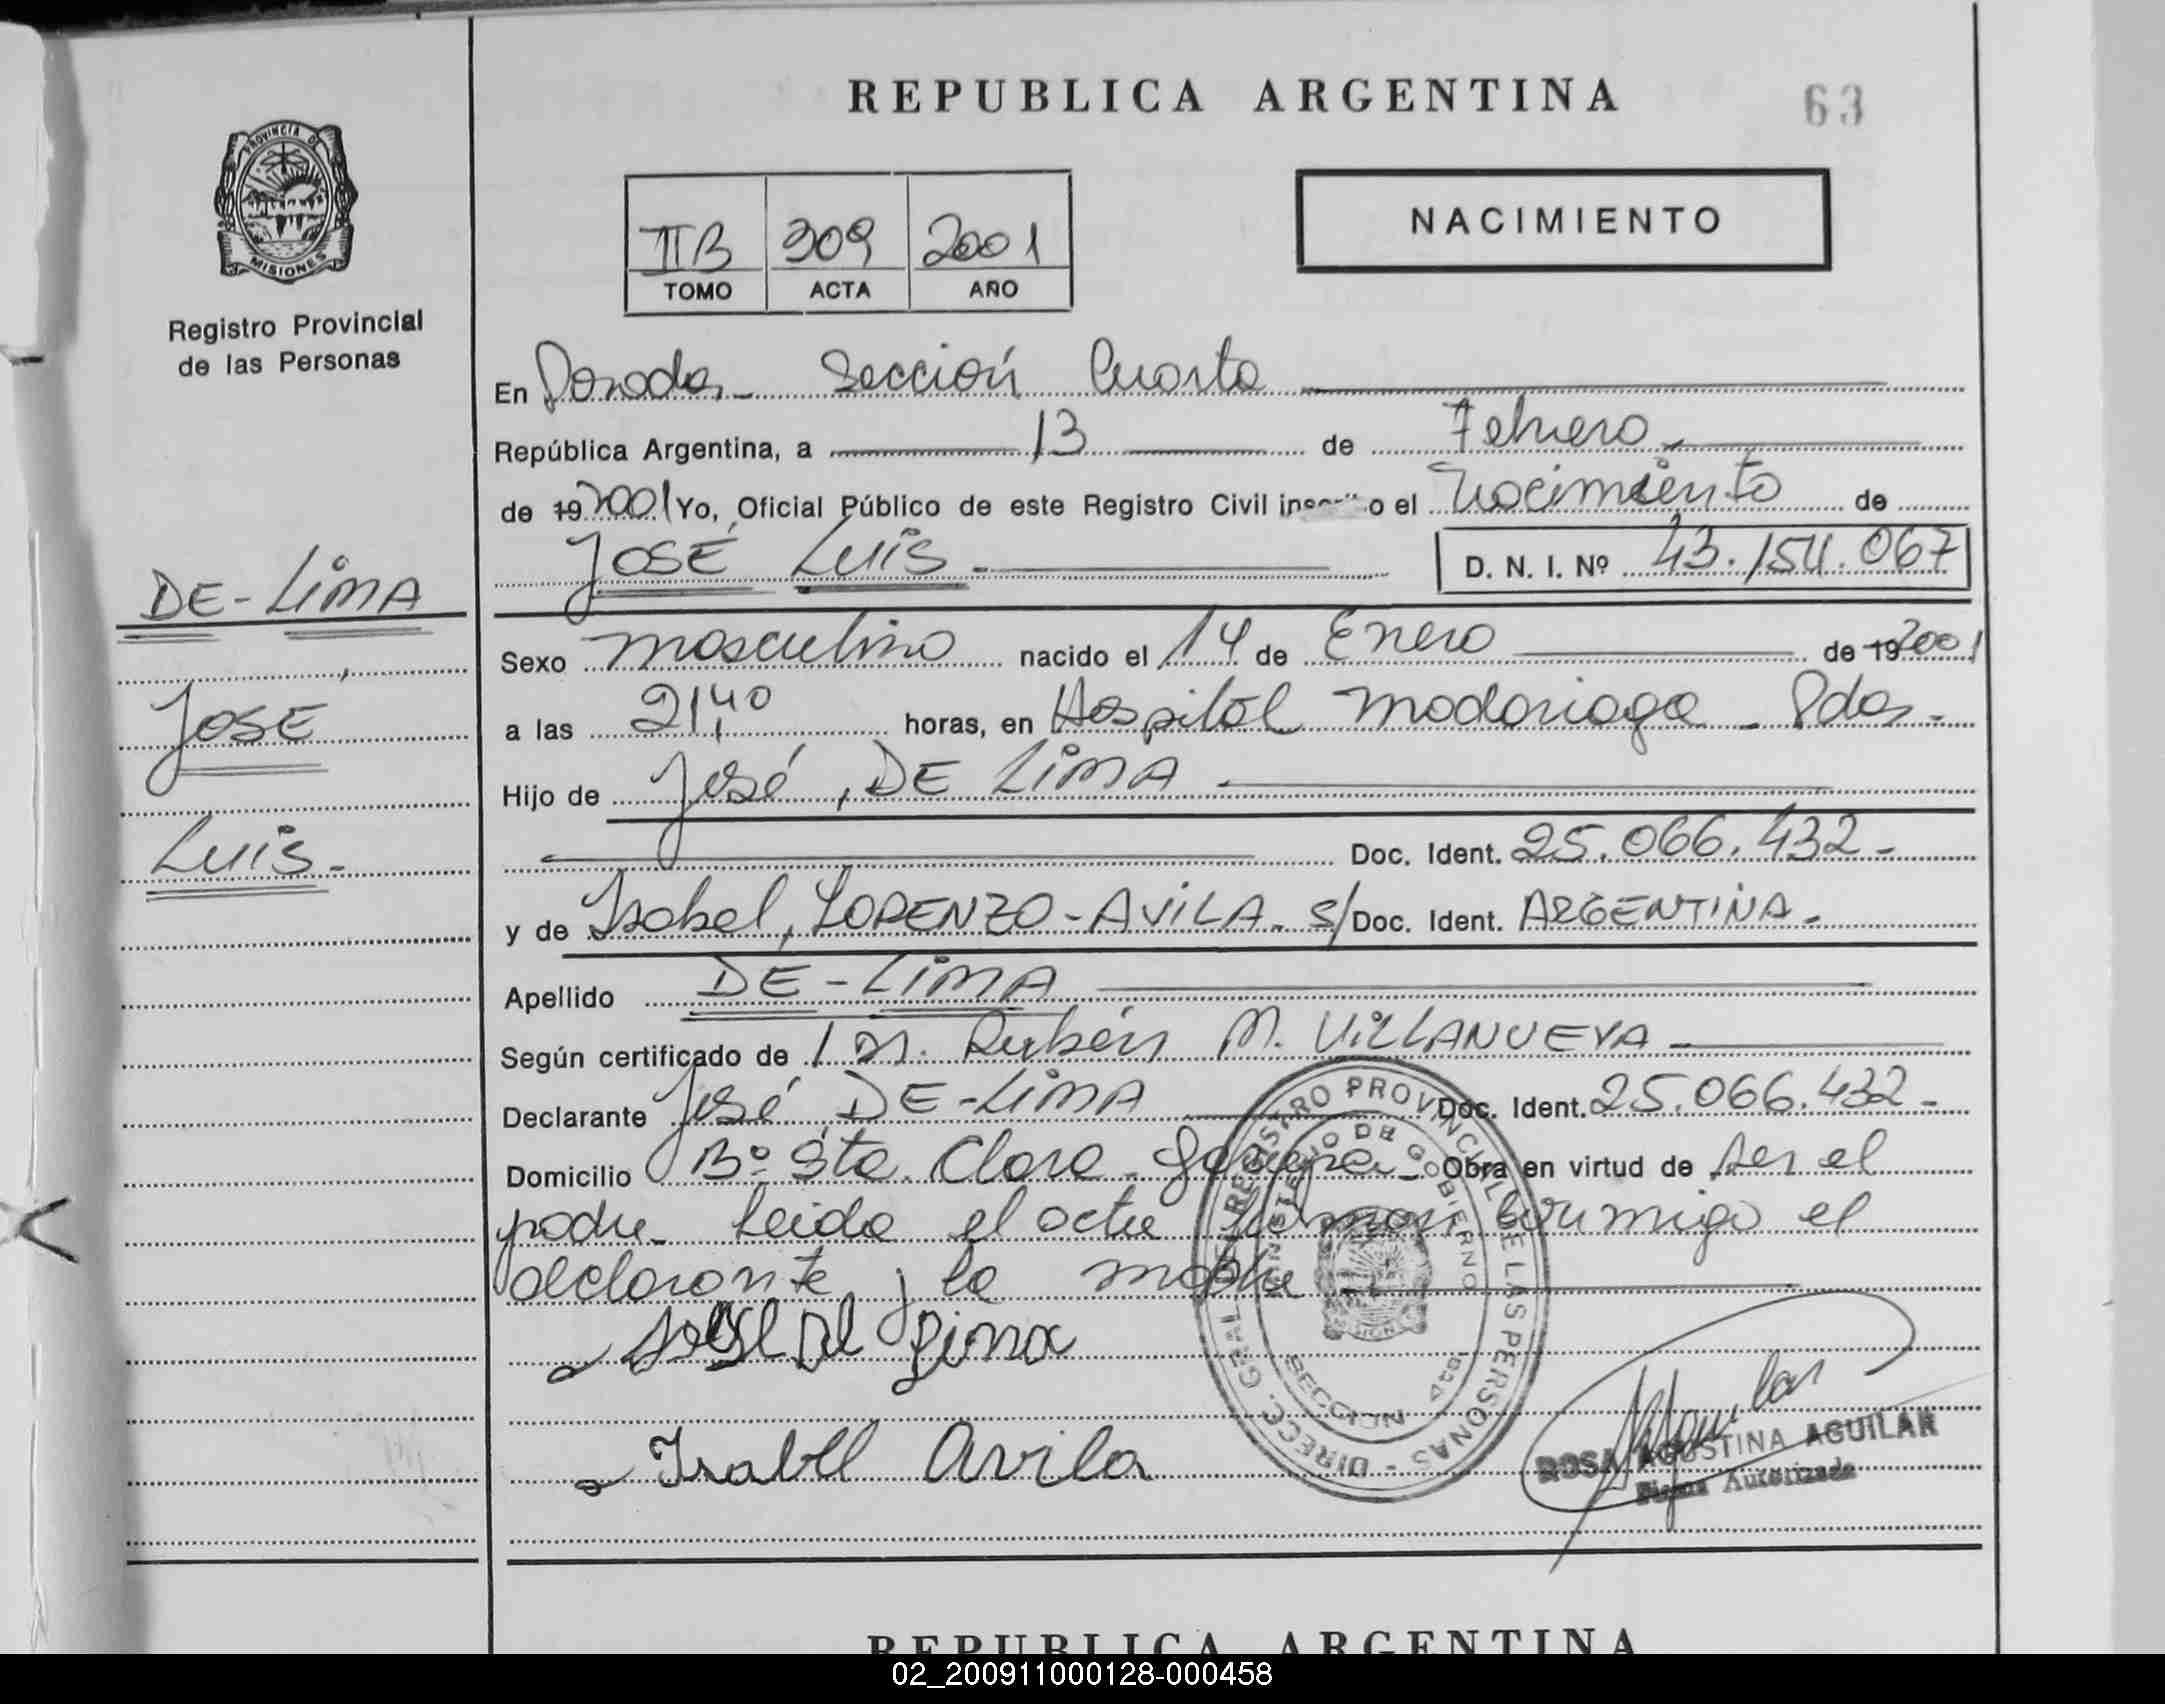 REPUBLICA ARGENTINA
63
PROVINCIA DE
MISIONES
Registro Provincial
de las Personas
IIB 309 2001
TOMO ACTA AÑO
NACIMIENTO
En Posadas - Sección Cuarta
República Argentina, a 13 de Febrero -
de 19 2001 Yo, Oficial Público de este Registro Civil inscribo el Nacimiento de
JOSÉ LUIS - D. N. I. Nº 43.154.067
DE-LIMA,
JOSE
LUIS -
Sexo masculino nacido el 14 de Enero de 19 2001
a las 21,40 horas, en Hospital Madariaga - Pdas -
Hijo de José, DE LIMA -
Doc. Ident. 25.066.432 -
y de Isabel, LORENZO-AVILA - s/ Doc. Ident. ARGENTINA -
Apellido DE-LIMA
Según certificado de Rubén M. VILLANUEVA -
Declarante José DE-LIMA Doc. Ident. 25.066.432 -
Domicilio Bº Sta. Clara - Obra en virtud de ser el
padre - Leida el acta firman conmigo el
declarante y la madre -
José de Lima
Isabel Avila
DIRECC. GRAL. DEL REGISTRO PROVINCIAL DE LAS PERSONAS -
MINISTERIO DE GOBIERNO
SECCION
Aguilar
ROSA AGUSTINA AGUILAR
Firma Autorizada
REPUBLICA ARGENTINA
02_200911000128-000458